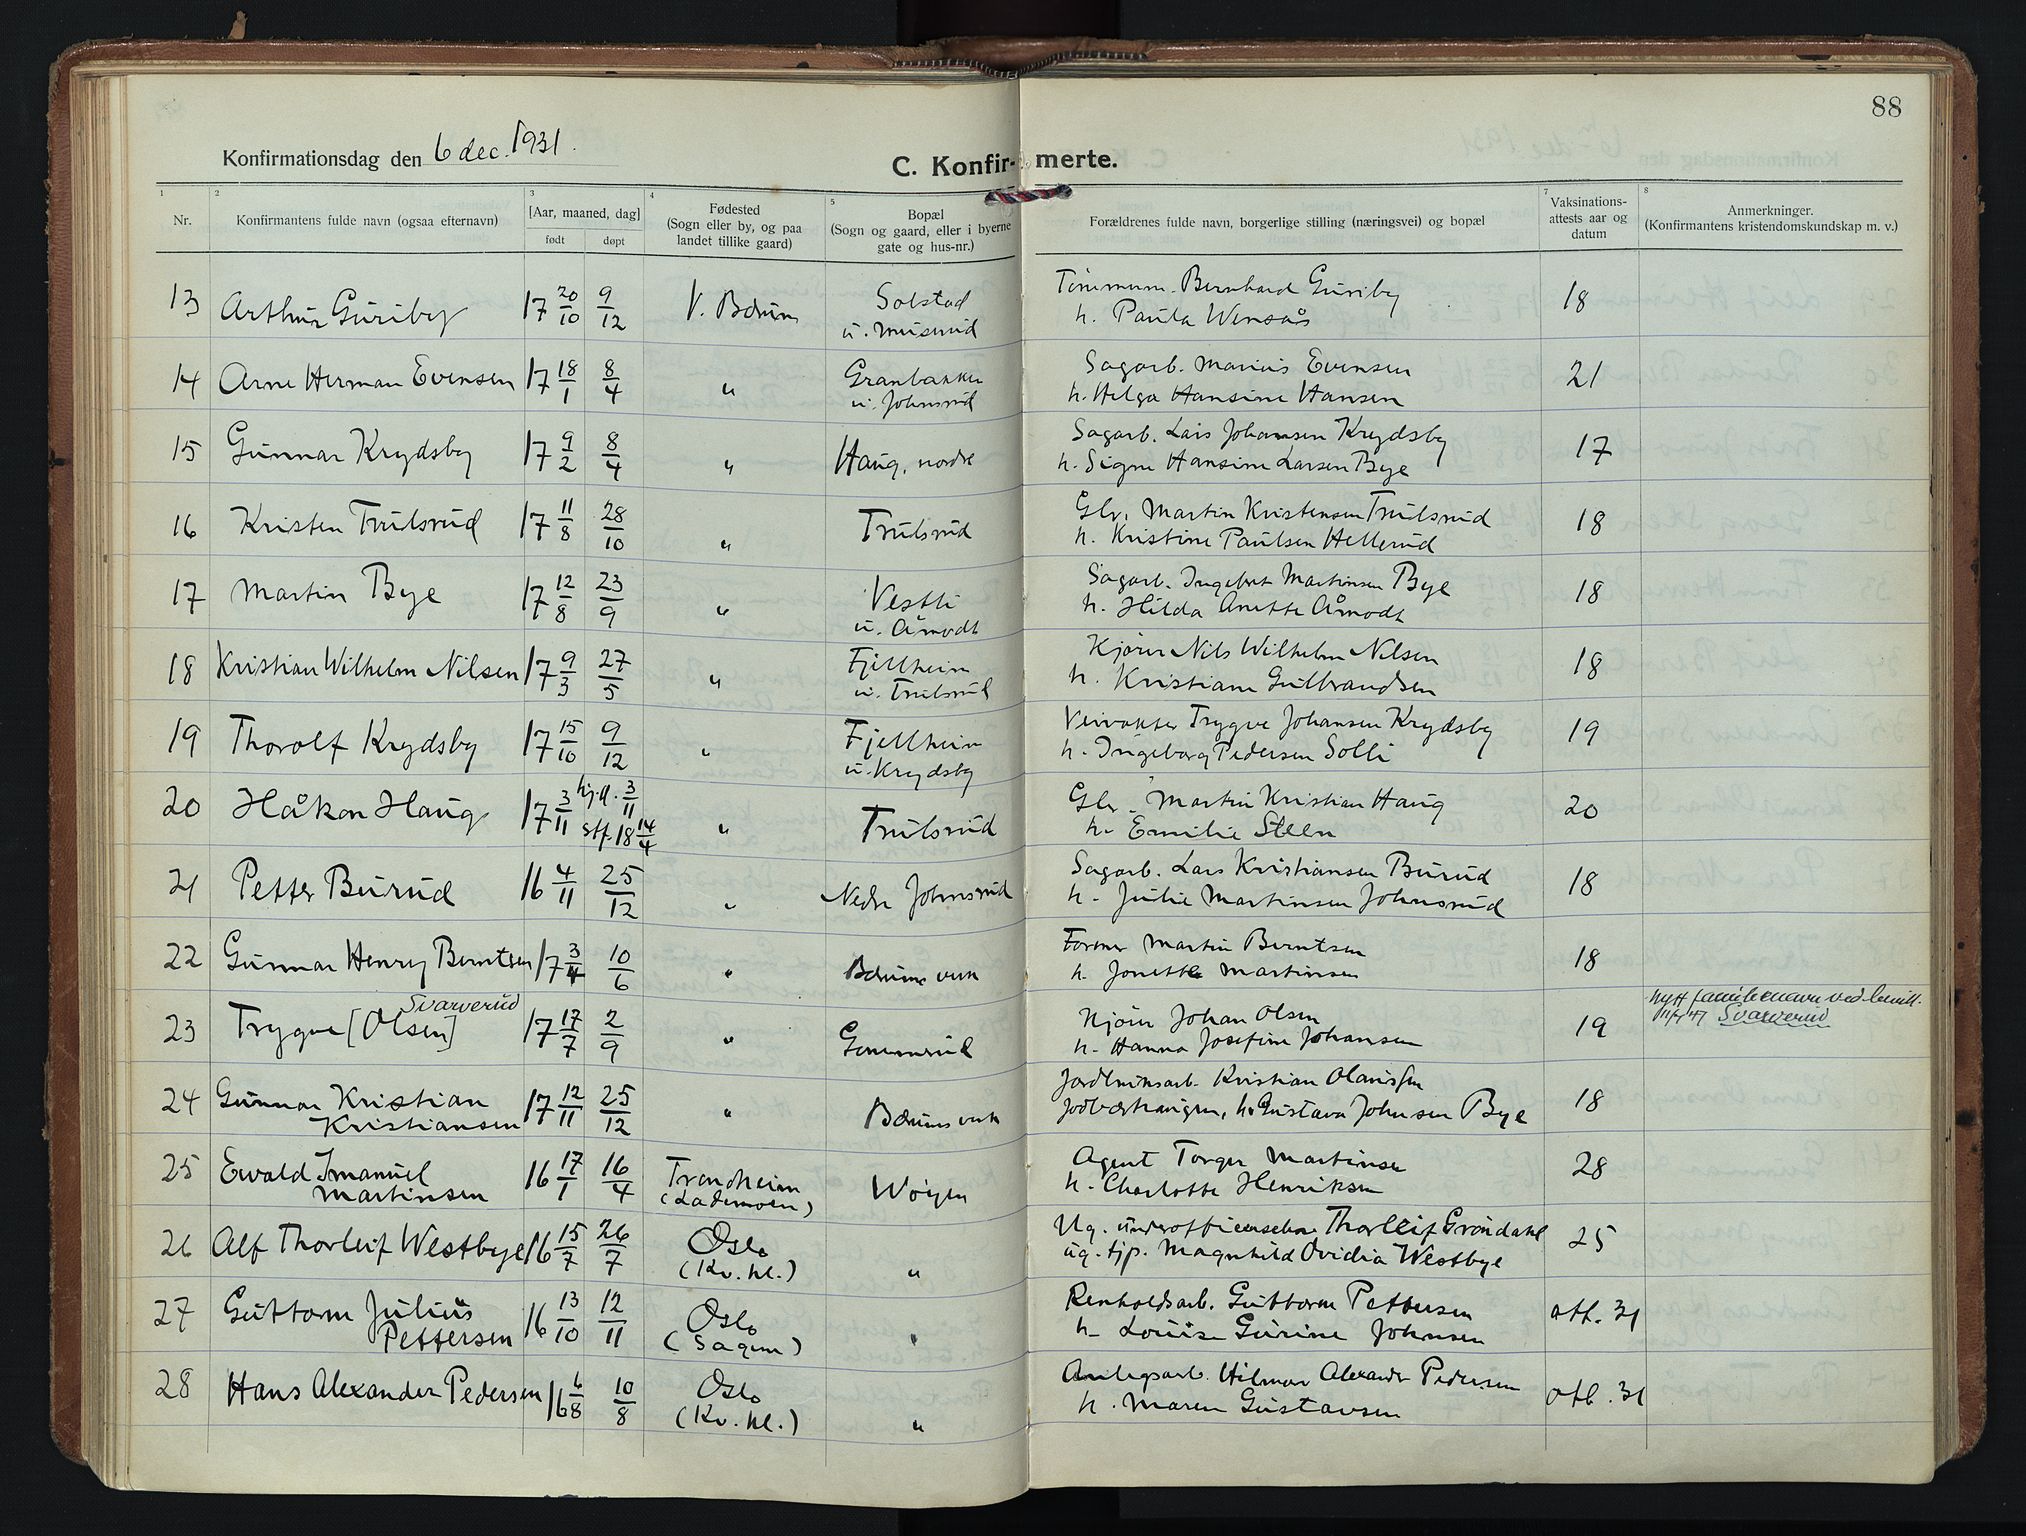 88
Konfirmationsdag den 6 dec. 1931.
C. Konfirmerte.
1 2 3 4 5 7 8
Nr.
Konfirmantens fulde navn (ogsaa efternavn)
[Aar, maaned, dag]
født døpt
Fødested
(Sogn eller by, og paa
landet tillike gaard)
Bopæl
(Sogn og gaard, eller i byerne
gate og hus-nr.)
Forældrenes fulde navn, borgerlige stilling (næringsvei) og bopæl
Vaksinations-
attests aar og
datum
Anmerkninger.
(Konfirmantens kristendomskundskap m. v.)
13 Arthur Guriby 17 20/10 9/12 V. Bærum Solstad
u. Muserud
Tømmerm. Bernhard Guriby
h. Paula Wensås
18
14 Arne Herman Evensen 17 18/1 8/4 " Granbakken
u. Johnsrud
Sagarb. Marius Evensen
h. Helga Hansine Hansen
21
15 Gunnar Krydsby 17 9/2 8/4 " Haug, nordre
Sagarb. Lars Johansen Krydsby
h. Signe Hansine Larsen Bye
17
16 Kristen Trulsrud 17 11/8 28/10 " Trulsrud
Gbr. Martin Kristensen Trulsrud
h. Kristine Paulsen Hellerud
18
17 Martin Bye 17 12/8 23/9 " Vestli
u. Åmodt
Sagarb. Ingebret Martinsen Bye
h. Hilda Anette Åmodt
18
18 Kristian Wilhelm Nilsen 17 9/3 27/5 " Fjellheim
u. Trulsrud
Kjører Nils Wilhelm Nilsen
h. Kristiane Gulbrandsen
18
19 Thorolf Krydsby 17 15/10 9/12 " Fjellheim
u. Krydsby
Veivokter Trygve Johansen Krydsby
h. Ingeborg Pedersen Solli
19
20 Håkon Haug 17 3/11 hj.d. 3/11
stf. 18 14/4 " Trulsrud
Gbr. Martin Kristian Haug
h. Emilie Steen
20
21 Petter Burud 16 4/11 25/12 " Nedre Johnsrud
Sagarb. Lars Kristiansen Burud
h. Julie Martinsen Johnsrud
18
22 Gunnar Henry Berntsen 17 3/4 10/6 " Bærums verk
Former Martin Berntsen
h. Jonette Martinsen
18
Svarverud
23 Trygve [Olsen] 17 17/7 2/9 " Gommerud
Kjører Johan Olsen
h. Hanna Josefine Johansen
19
Nytt familienavn ved bevill.
11/7 47 Svarverud
24 Gunnar Kristian
Kristiansen 17 12/11 25/12 " Bærums verk
Jordbruksarb. Kristian Olaussen
h. Gustava Johnsen Bye
18
25 Ewald Imanuel
Martinsen 16 17/1 16/4 Trondheim
(Lademoen) Wøyen
Agent Torger Martinsen
h. Charlotte Henriksen
28
26 Alf Thorleif Westbye 16 15/7 26/7 Oslo
(Kv. kl.) "
Ug. underofficerselev Thorleif Grøndahl
ug. tjp. Magnhild Ovidia Westbye
25
27 Guttorm Julius
Pettersen 16 13/10 12/11 Oslo
(Sagene) "
Renholdsarb. Guttorm Pettersen
h. Louise Gurine Johnsen
att. 31
28 Hans Alexander Pedersen 16 6/8 10/8 Oslo
(Kv. kl.) "
Anlegsarb. Hilmar Alexander Pedersen
h. Maren Gustavsen
att. 31